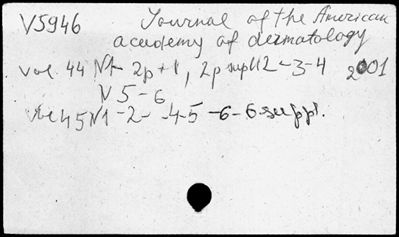 V5946 Journal of the American
academy of dermatology
vol. 44 N1- 2p+1, 2p suppl 2-3-4 2001
N 5-6
vol 45 N1-2- -4-5-6-6 suppl.